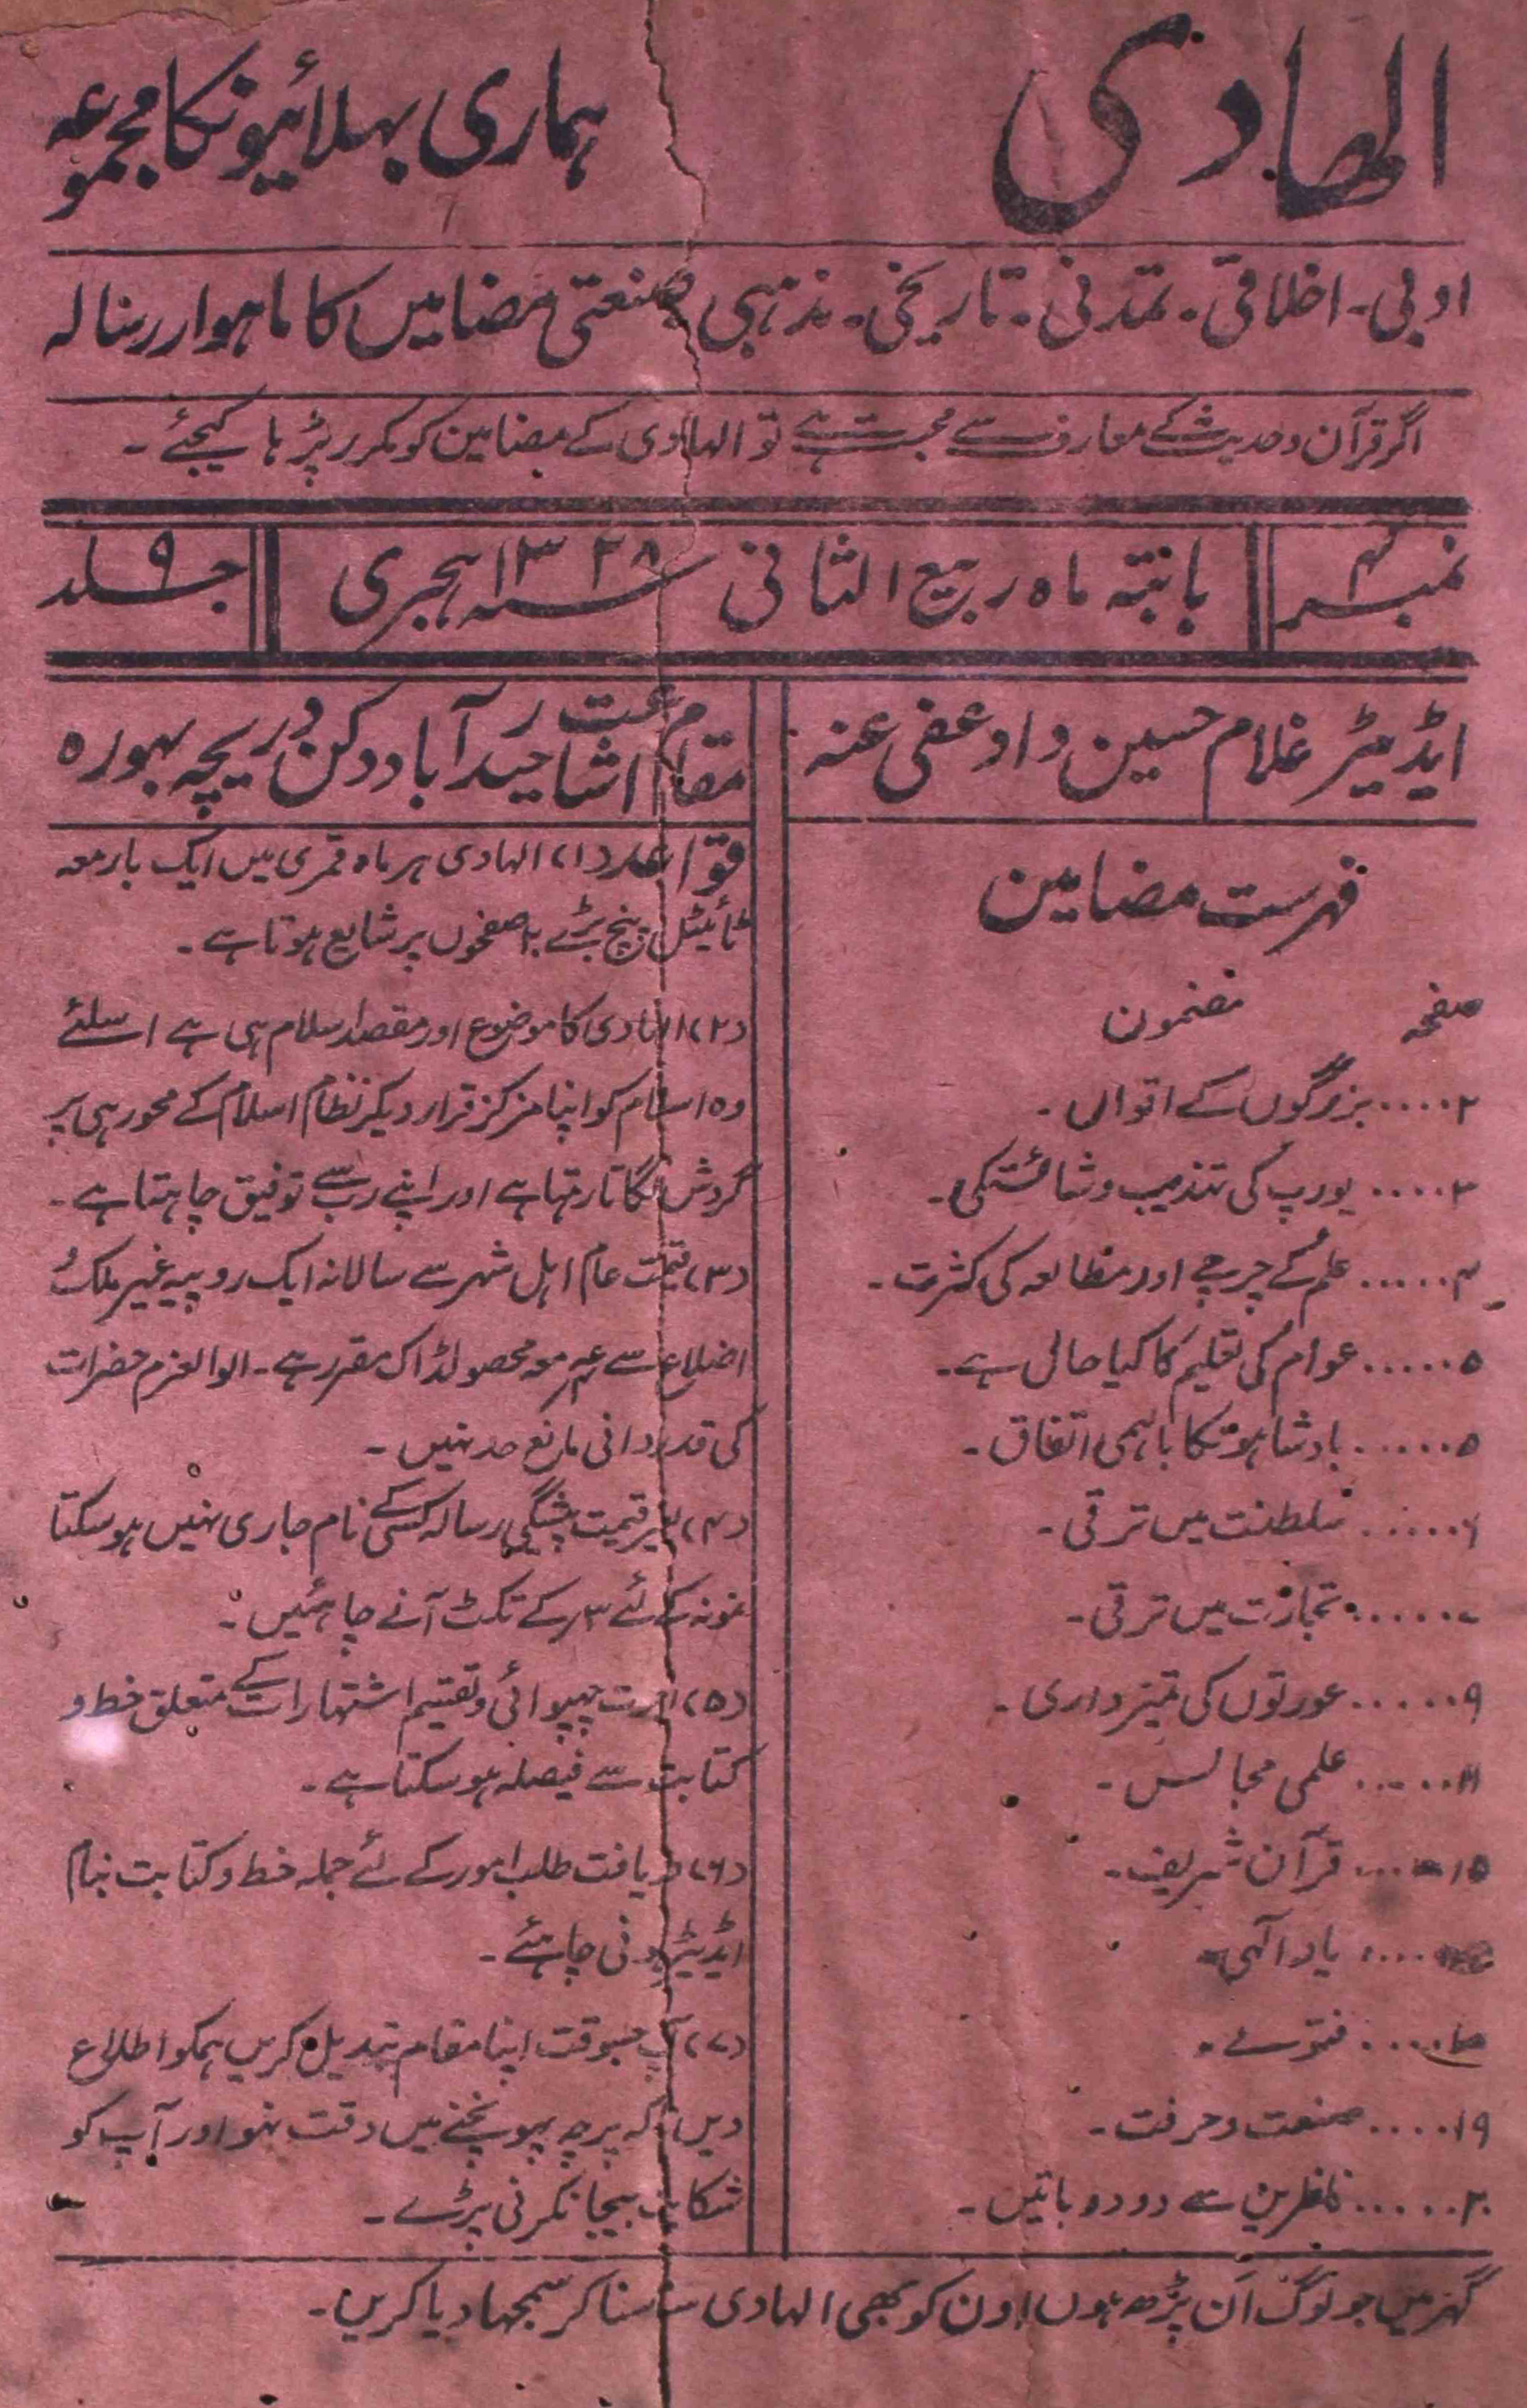 الهادی
ہماری بھلائیونکا مجموعہ
ادبی۔ اخلاقی۔ تمدنی۔ تاریخی۔ مذہبی صنعتی مضامیں کا ماہوار رسالہ
اگر قرآن وحدیث کے معارف سے محبت ہے تو الہادی کے مضامین کو مکرر پڑہا کیجئے۔
نمبر ۴
بابتہ ماہ ربیع الثانی سنہ ۱۳۲۸ ہجری
جلد ۹
ایڈیٹر غلام حسین داود عفی عنہ
فہرست مضامین
صفحہ مضمون
۲.... بزرگوں کے اقوال۔
۳.... یورپ کی تہذیب وشائستگی۔
۴..... علم کے چرچے اور مطالعہ کی کثرت۔
۵..... عوام کی تعلیم کا کیا حال ہے۔
۵..... بادشاہونکا باہمی اتفاق۔
۶..... سلطنت میں ترقی۔
۷..... تجارت میں ترقی۔
۹..... عورتوں کی تمیز داری۔
۱۱..... علمی مجالس۔
۱۵.... قرآن شریف۔
.... یاد الٰہی۔
.... فتوے۔
۱۹.... صنعت وحرفت۔
۲۰..... ناظرین سے دو دو باتیں۔
مقام اشاعت حیدرآباد دکن دریچہ بہورہ
قواعد (۱) الہادی ہر ماہ قمری میں ایک بار معہ
ٹائیٹل پیج بڑے صفحوں پر شایع ہوتا ہے۔
(۲) الہادی کا موضوع اور مقصد اسلام ہی ہے اسلئے
وہ اسلام کو اپنا مرکز قرار دیکر نظام اسلام کے محور ہی پر
گردش لگاتا رہتا ہے اور اپنے رب سے توفیق چاہتا ہے۔
(۳) قیمت عام اہل شہر سے سالانہ ایک روپیہ غیر ملک و
اضلاع سے معہ محصولڈاک مقرر ہے۔ الوالعزم حضرات
کی قدردانی مانع حد نہیں۔
(۴) بغیر قیمت پیشگی رسالہ کسی کے نام جاری نہیں ہو سکتا
نمونہ کے لئے ۳؍ کے ٹکٹ آنے چاہئیں۔
(۵) اجرت چھپوائی وتقسیم اشتہارات کے متعلق خط و
کتابت سے فیصلہ ہو سکتا ہے۔
(۶) دریافت طلب امور کے لئے جملہ خط وکتابت بنام
ایڈیٹر ہونی چاہئے۔
(۷) آپ جسوقت اپنا مقام تبدیل کریں ہمکو اطلاع
دیں تاکہ پرچہ پہونچنے میں دقت نہو اور آپ کو
شکایت بیجا نکرنی پڑے۔
گھر میں جو لوگ اَن پڑھ ہوں اون کو بھی الہادی سنا سنا کر سمجھا دیا کریں۔